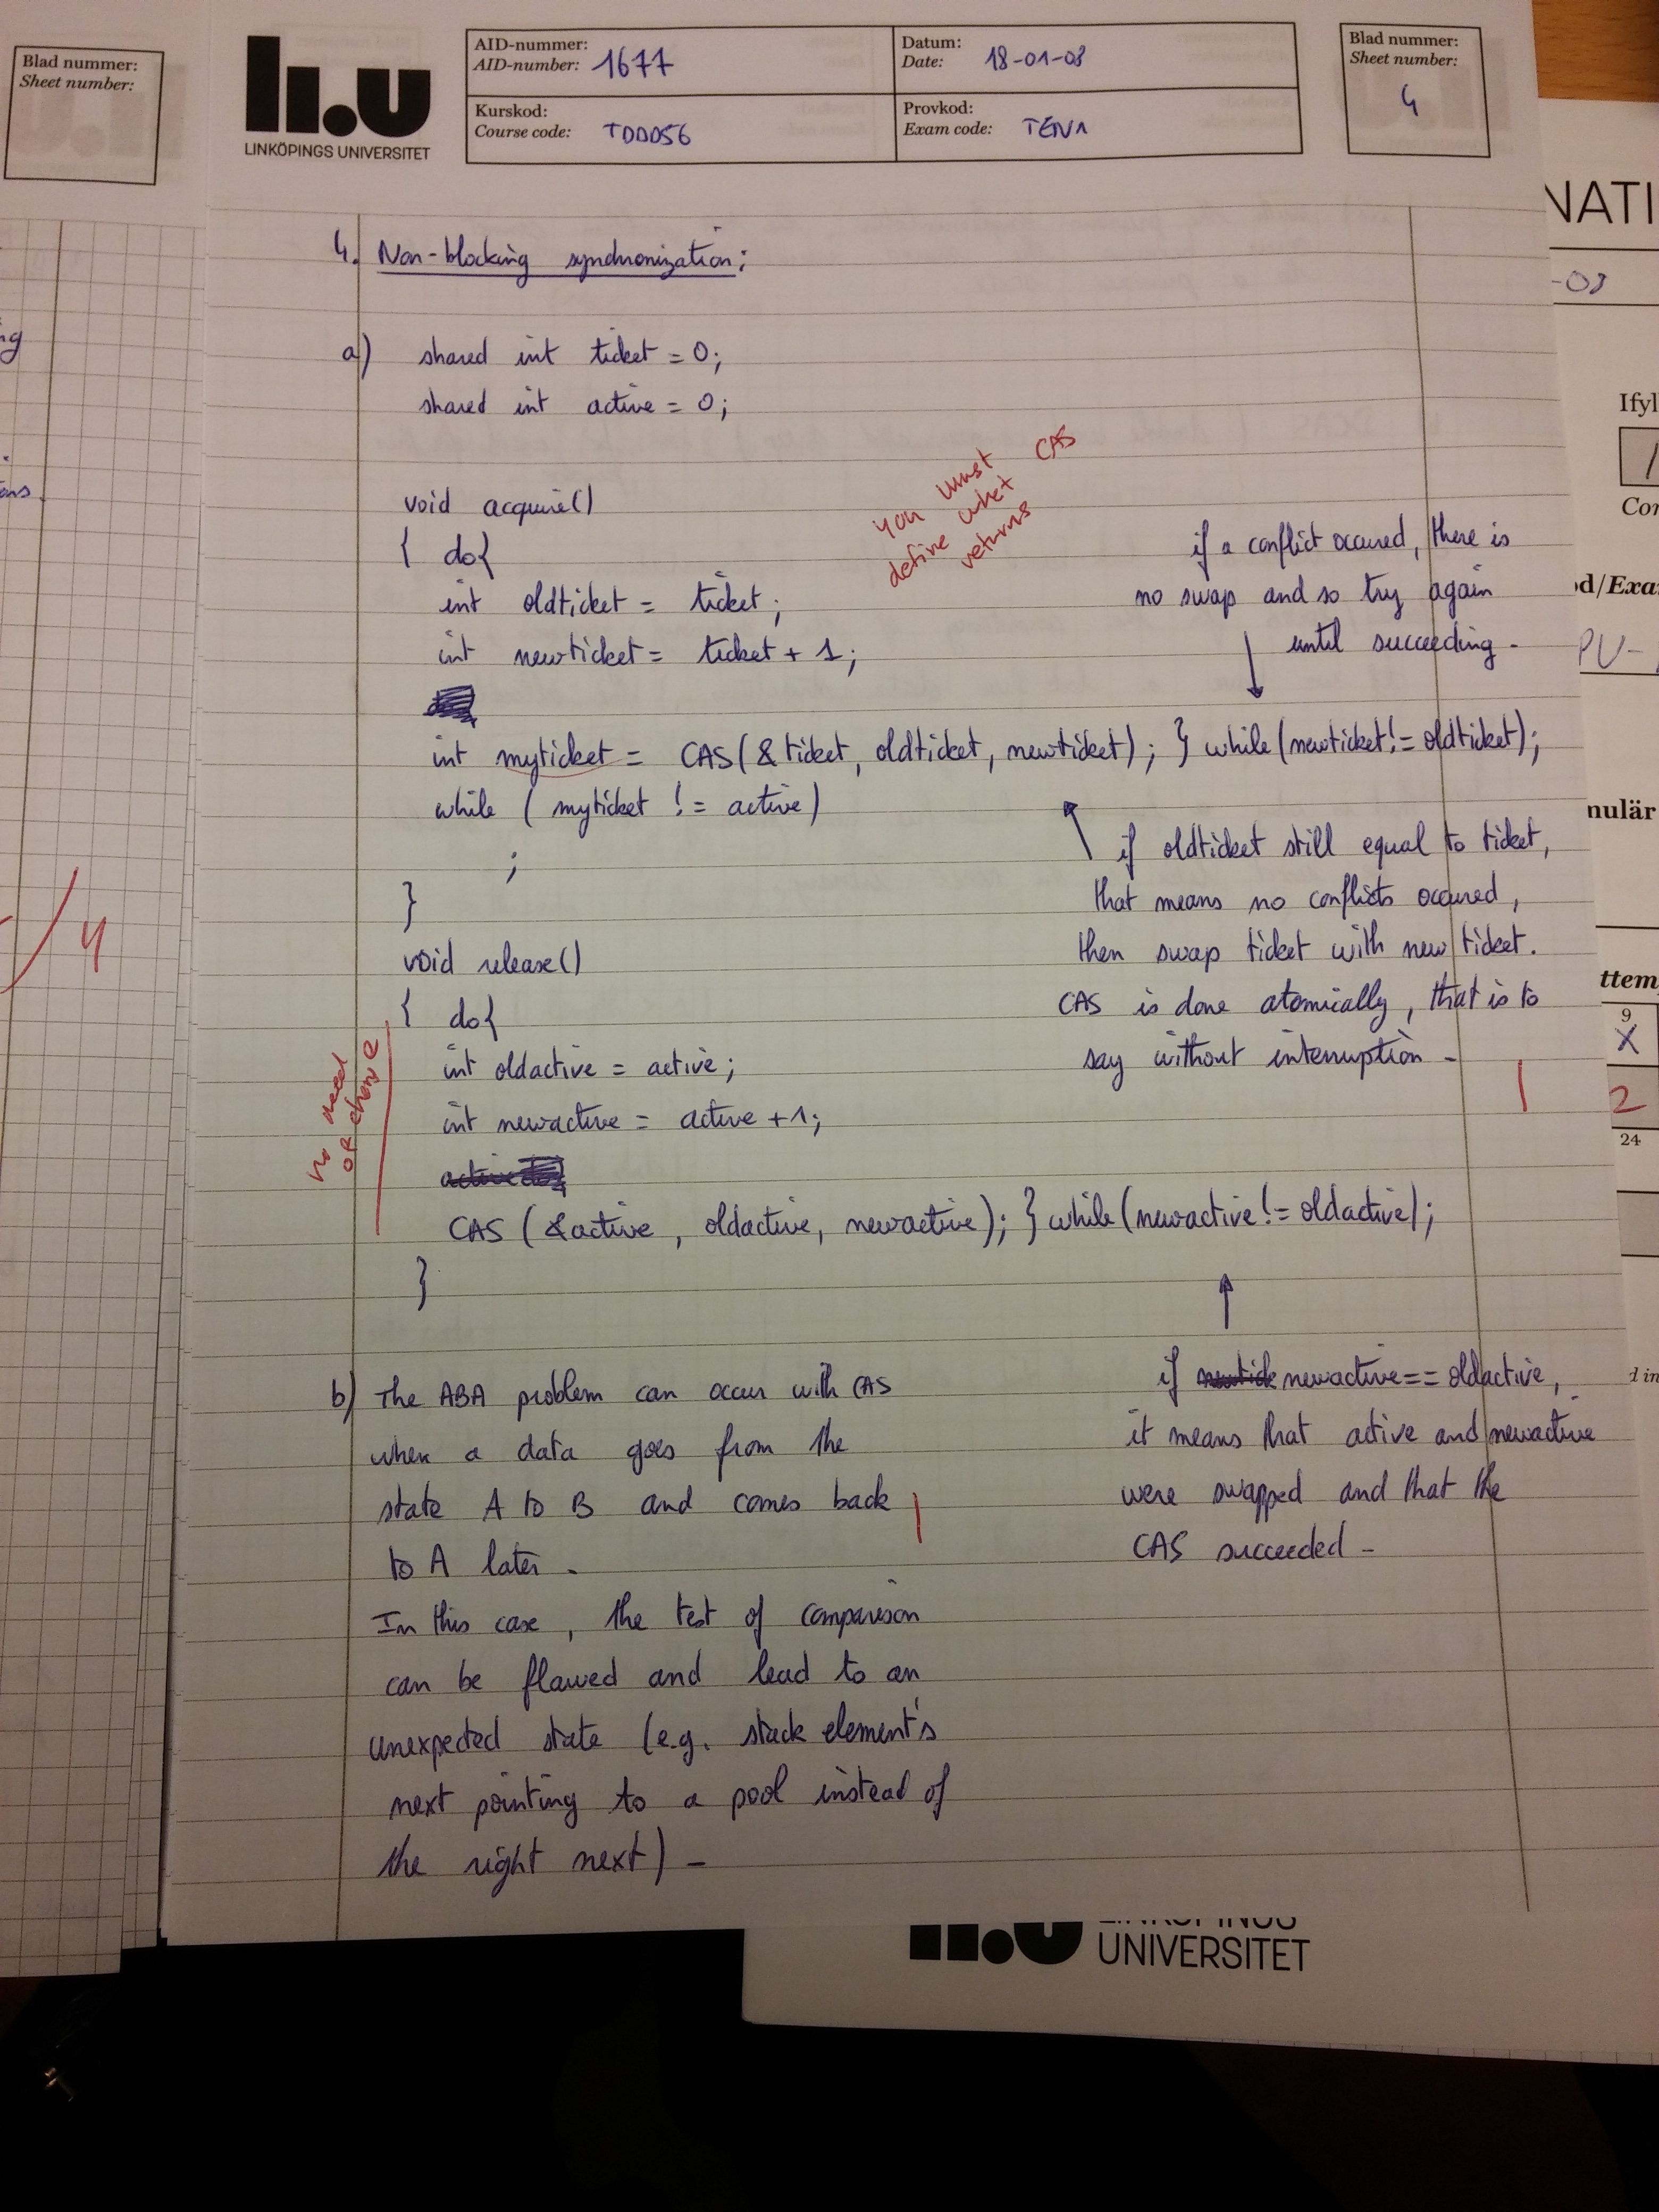 Blad nummer:
Sheet number:
li.u
LINKÖPINGS UNIVERSITET
AID-nummer:
AID-number: 1677
Datum:
Date: 18-01-08
Kurskod:
Course code: TDDD56
Provkod:
Exam code: TEN1
Blad nummer:
Sheet number:
4
4. Non-blocking synchronization:
a) shared int ticket = 0;
shared int active = 0;
void acquire()
{ do{
int oldticket = ticket;
int newticket = ticket + 1;
int myticket = CAS(&ticket, oldticket, newticket); } while(newticket!= oldticket);
while ( myticket != active)
;
}
you must
define what CAS
returns
if a conflict occured, there is
no swap and so try again
until succeeding -
if oldticket still equal to ticket,
that means no conflicts occured,
then swap ticket with new ticket.
CAS is done atomically, that is to
say without interruption -
1
void release()
{ do{
int oldactive = active;
int newactive = active +1;
CAS (&active, oldactive, newactive); } while(newactive!= oldactive);
}
no need
of change
if newactive == oldactive,
it means that active and newactive
were swapped and that the
CAS succeeded -
b) The ABA problem can occur with CAS
when a data goes from the
state A to B and comes back
to A later.
In this case, the test of comparison
can be flawed and lead to an
unexpected state (e.g. stack element's
next pointing to a pool instead of
the right next) -
1
ng
ons.
/4
NATI
-08
Ifyl
Cor
od/Exa
PU-
mulär
ttem
9
X
2
24
d in
li.u
LINKÖPINGS
UNIVERSITET